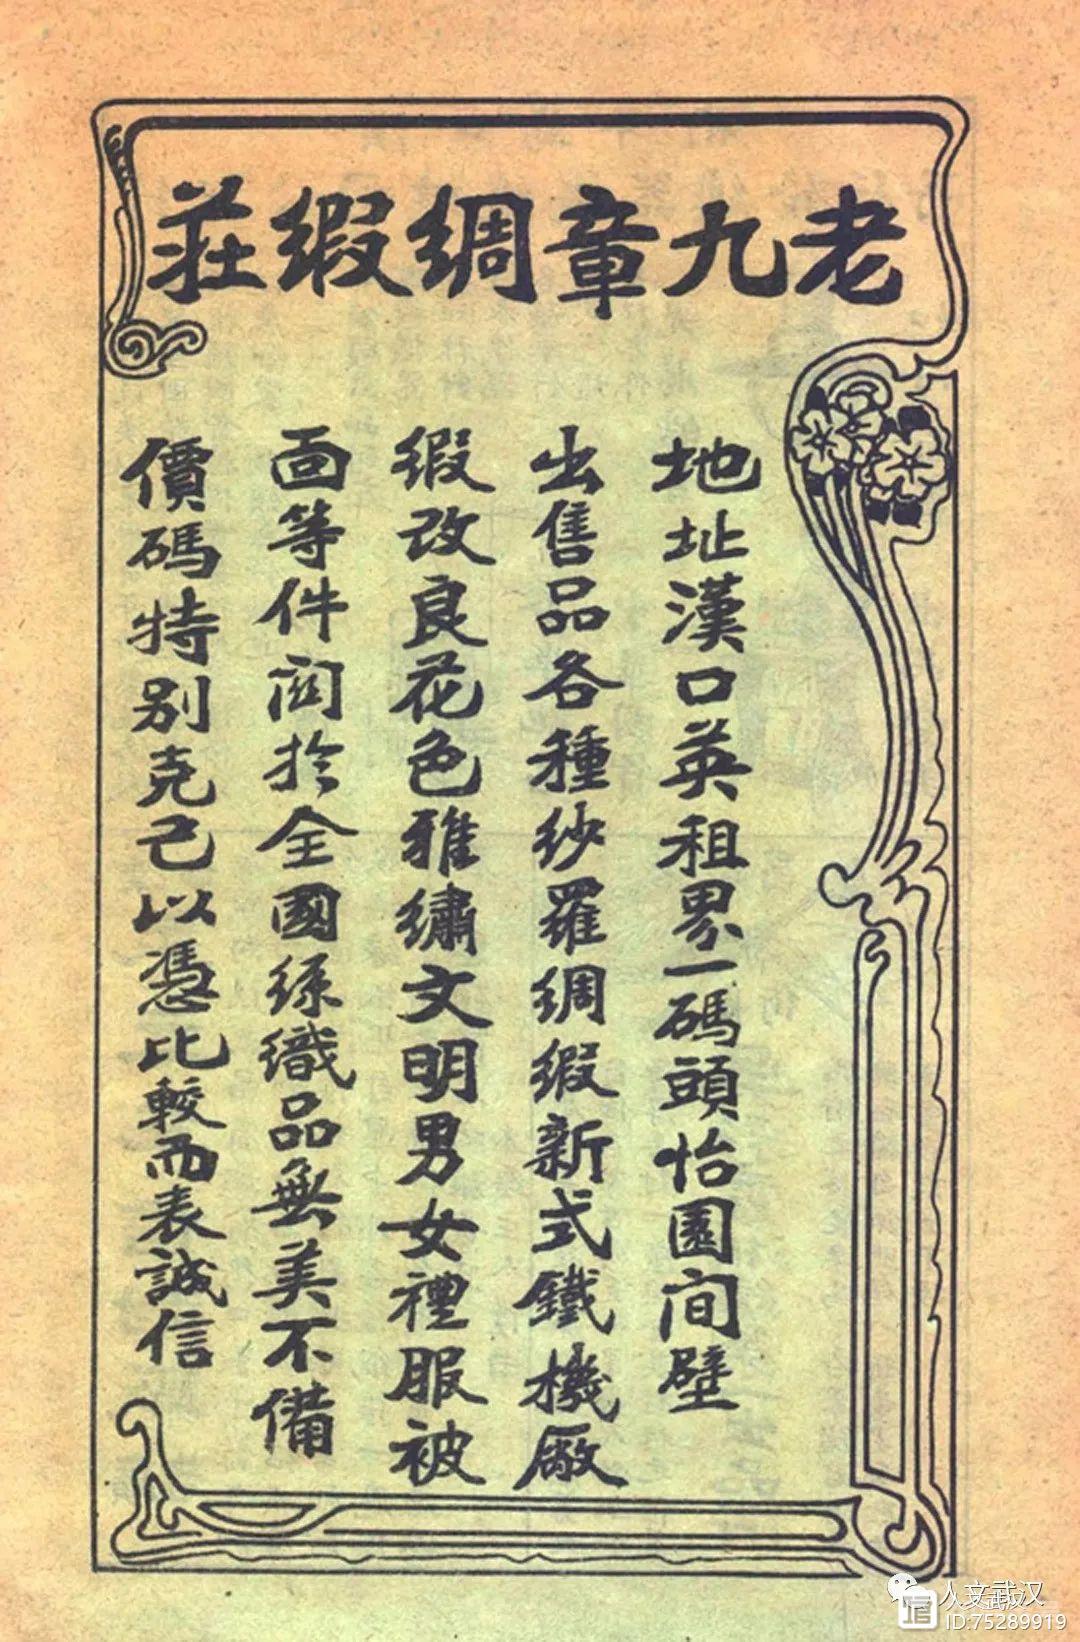 老九章綢緞莊
地址漢口英租界一碼頭怡園间壁
出售品各種紗羅綢緞新式鐵機廠
緞改良花色雅繡文明男女禮服被
面等件関於全國絲織品無美不備
價碼特別克己以憑比較而表誠信
人文武汉
ID:75289919